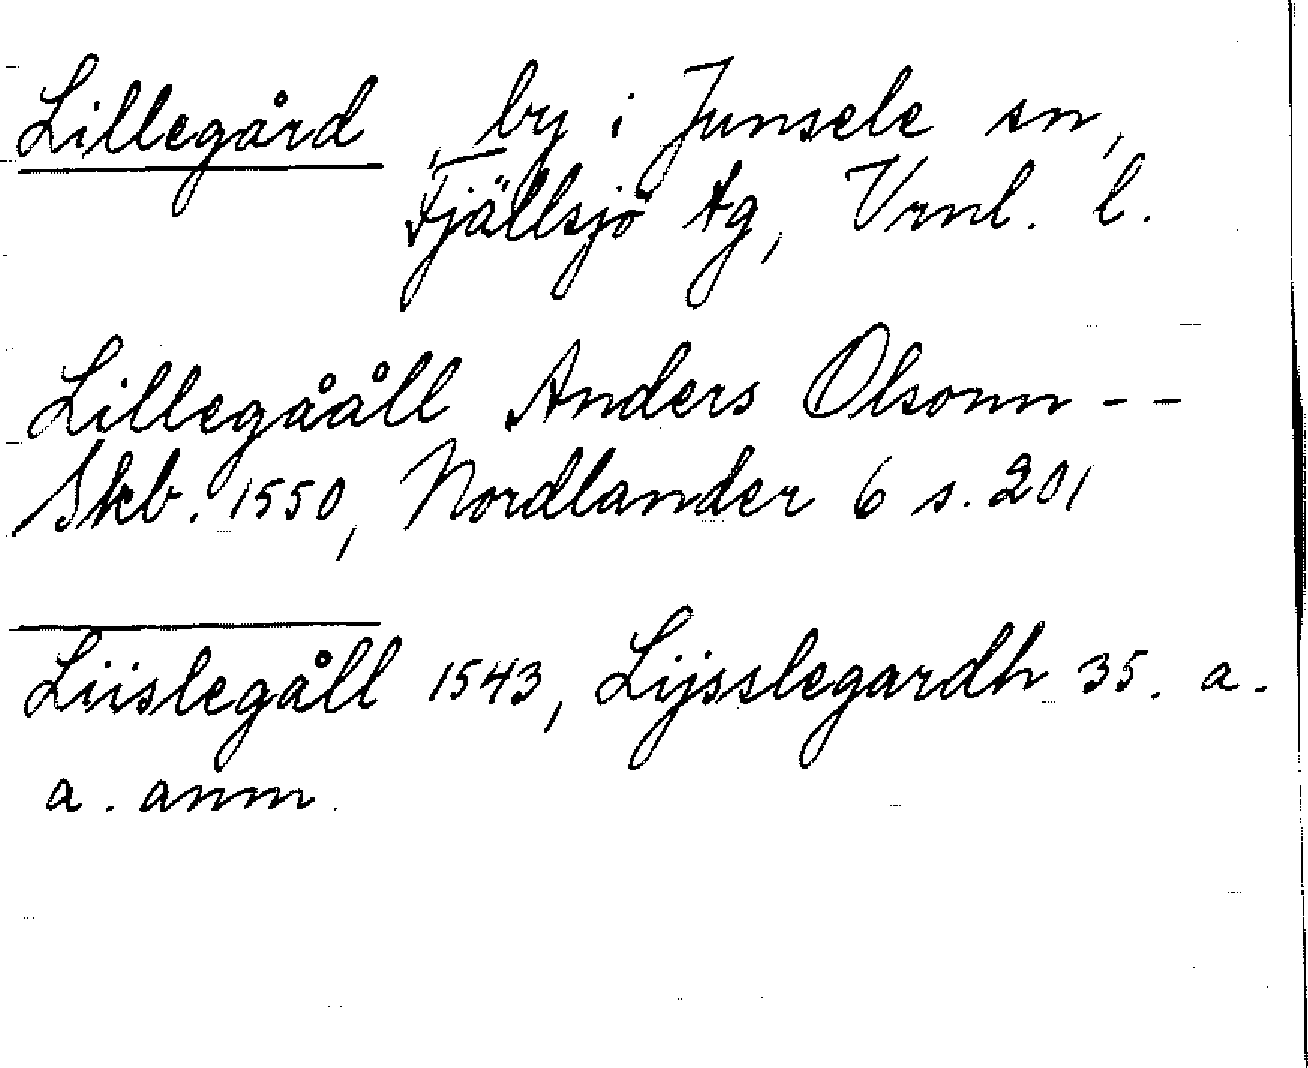 Lillegård, by i Junsele sn,
Fjällsjö tg, Vrnl. l.
Lillegååll Anders Olsonn - -
Skb. 1550, Nordlander 6 s. 201
Liislegåll 1543, Lijsslegardh 35. a.
a. anm.